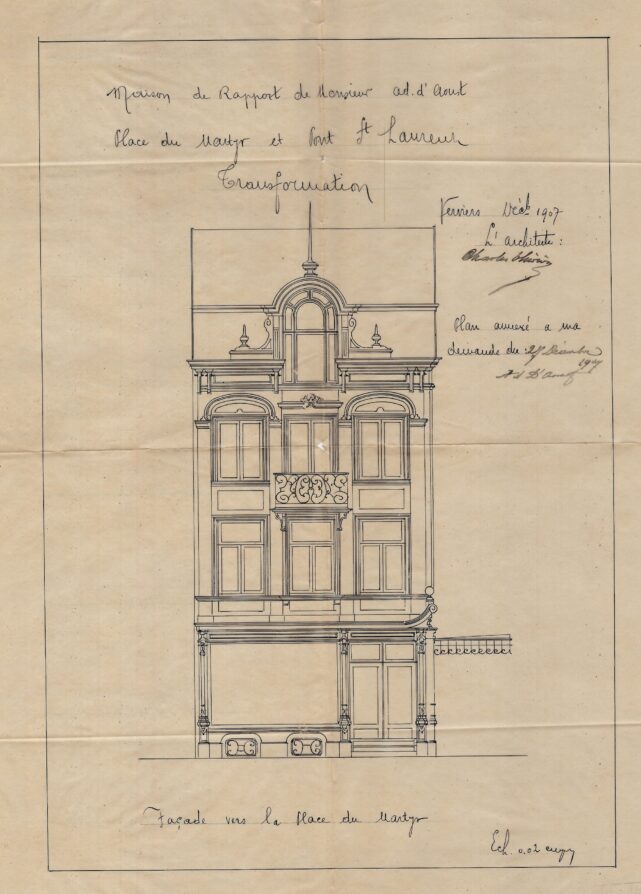 Maison de Rapport de Monsieur Ad. d'Aoust
Place du Martyr et Pont St Laurent
Transformation
Verviers Décb 1907
L'architecte :
Charles
Plan annexé a ma
demande du Décembre
1907
Ad D'Aoust
Façade vers la Place du Martyr
Ech. 0.02